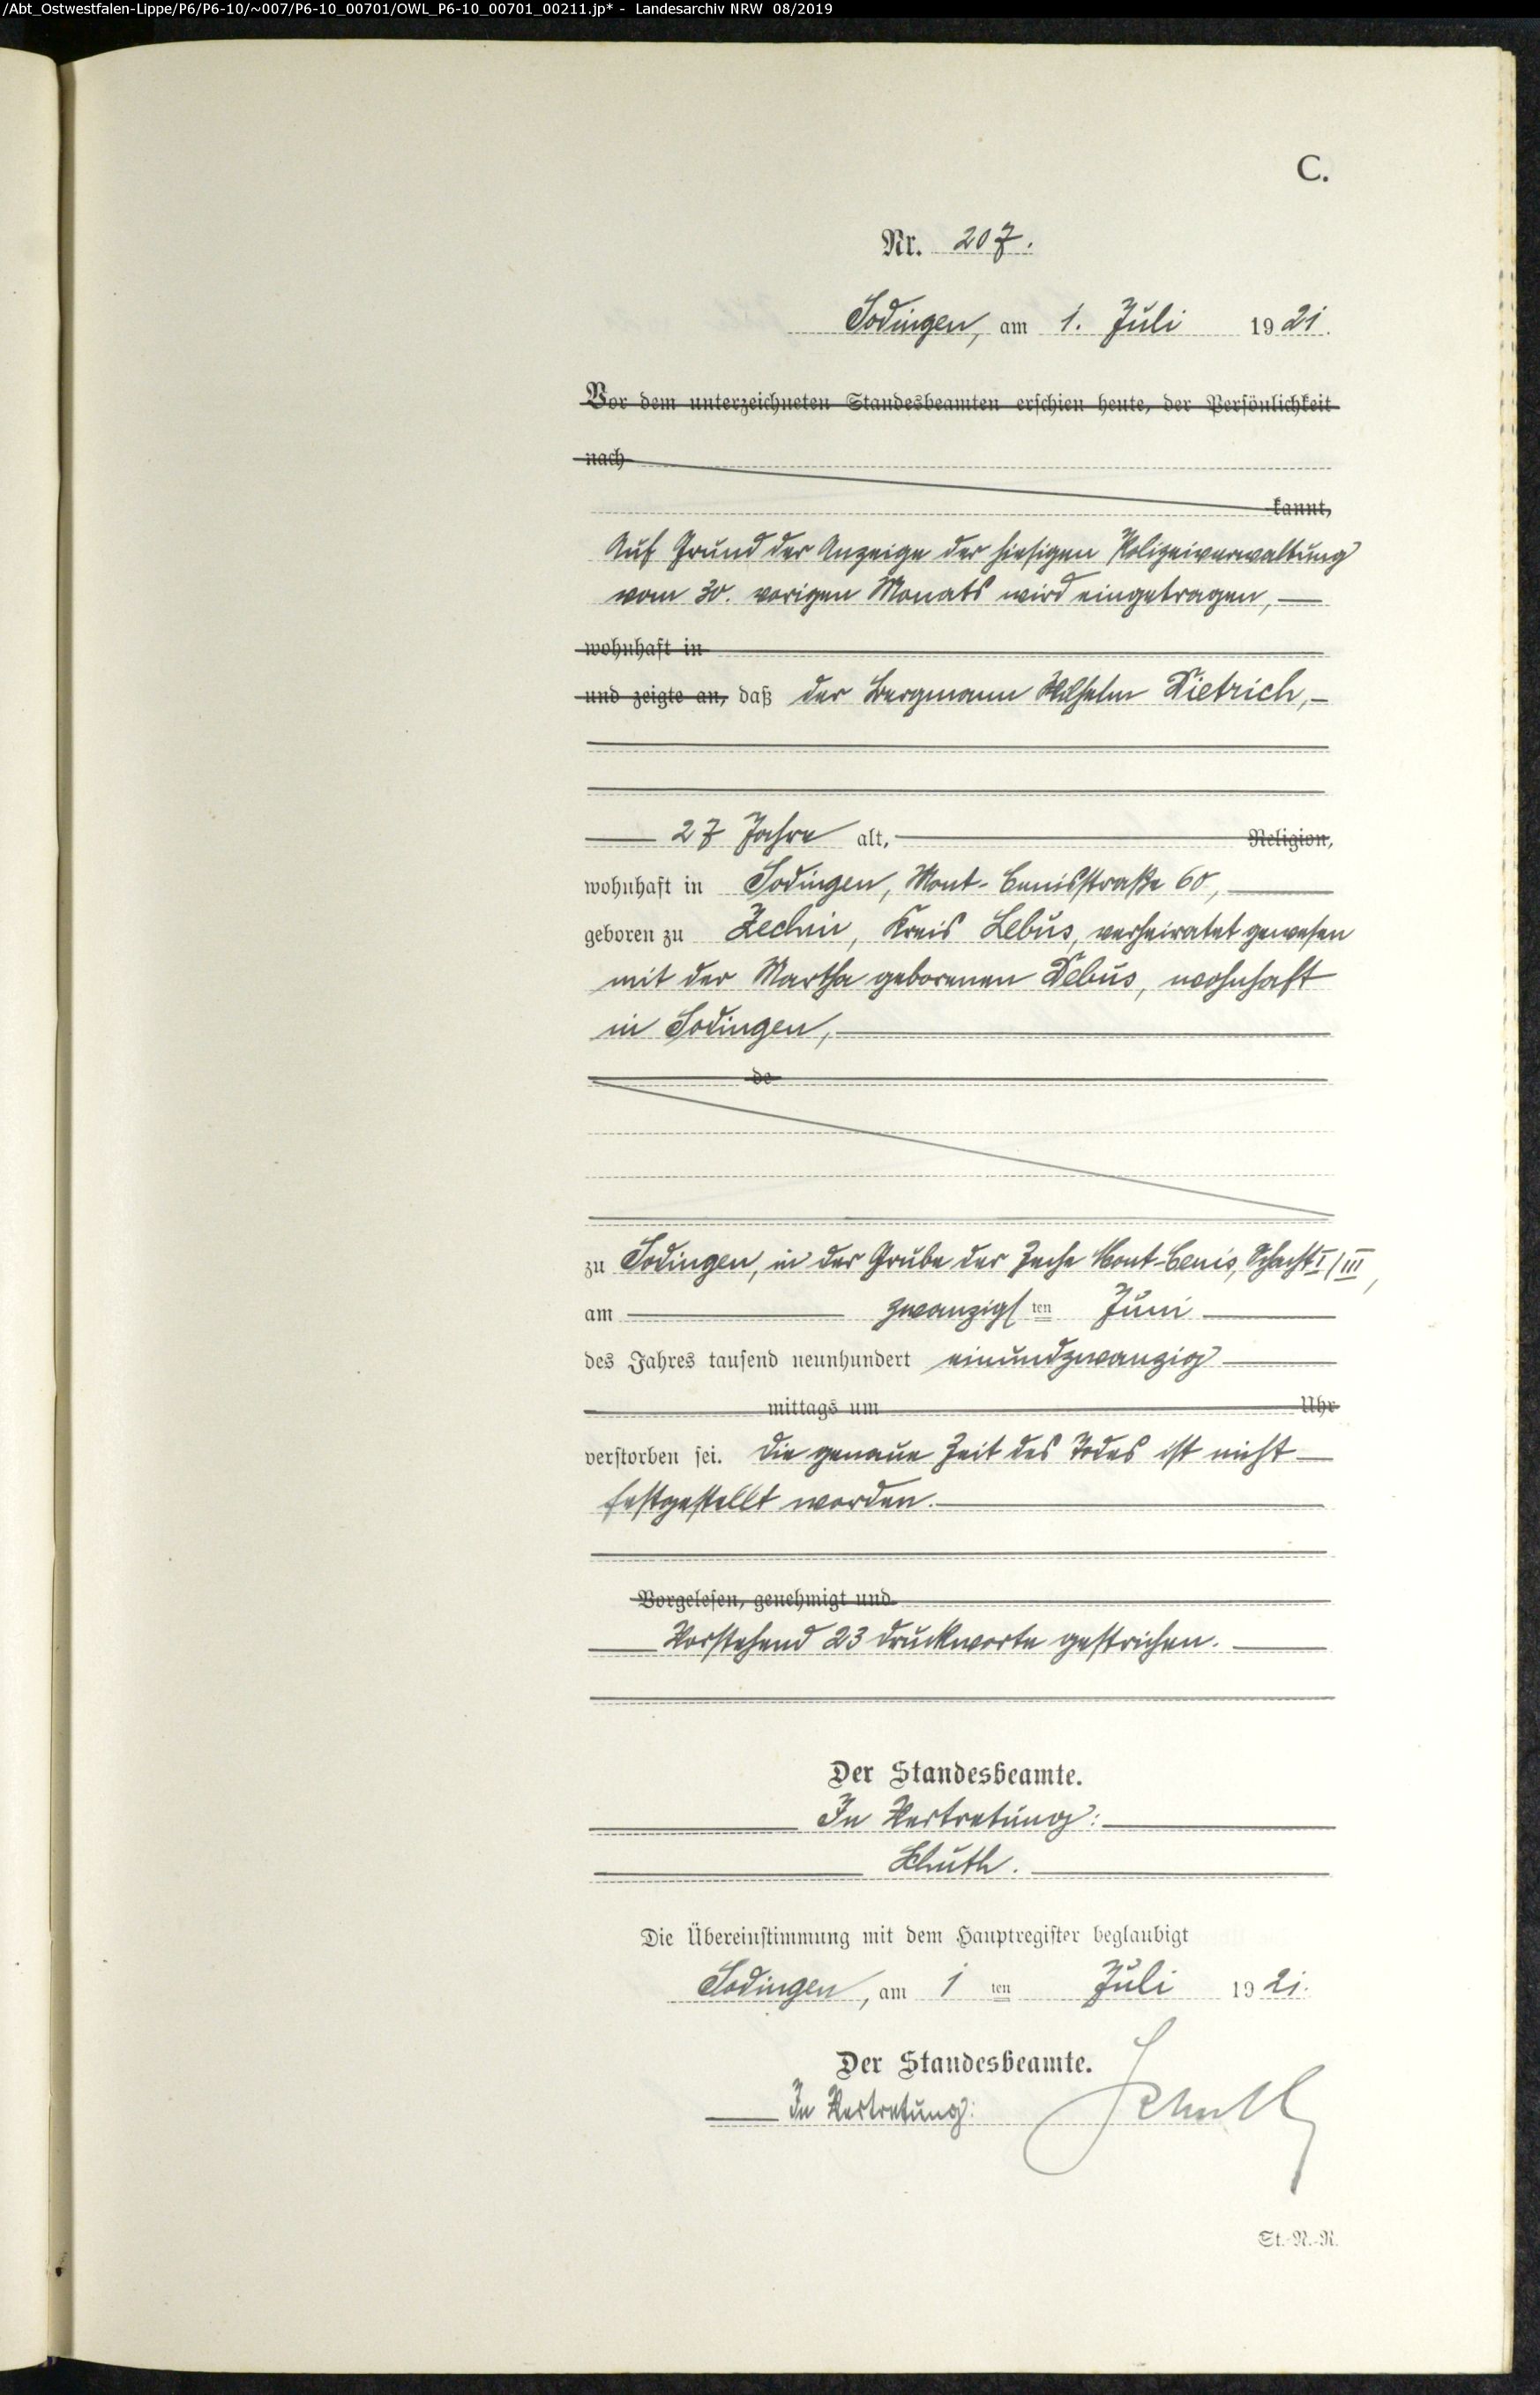 /Abt_Ostwestfalen-Lippe/P6/P6-10/~007/P6-10_00701/OWL_P6-10_00701_00211.jp* - Landesarchiv NRW 08/2019
C.
Nr. 207.
Sodingen, am 1. Juli 1921.
Vor dem unterzeichneten Standesbeamten erschien heute, der Persönlichkeit
nach
kannt,
Auf Grund der Anzeige der hiesigen Polizeiverwaltung
vom 30. vorigen Monats wird eingetragen,
wohnhaft in
und zeigte an, daß der Bergmann Wilhelm Dietrich,
27 Jahre alt, Religion,
wohnhaft in Sodingen, Mont-Cenisstraße 60,
geboren zu Zechin, Kreis Lebus, verheiratet gewesen
mit der Martha geborenen Debus, wohnhaft
in Sodingen,
de
zu Sodingen, in der Grube der Zeche Mont-Cenis, Schacht I/III,
am zwanzigsten Juni
des Jahres tausend neunhundert einundzwanzig
mittags um Uhr
verstorben sei. Die genaue Zeit des Todes ist nicht
festgestellt worden.
Vorgelesen, genehmigt und
Vorstehend 23 Druckworte gestrichen.
Der Standesbeamte.
In Vertretung:
Schuth.
Die Übereinstimmung mit dem Hauptregister beglaubigt
Sodingen, am 1ten Juli 1921.
Der Standesbeamte.
In Vertretung: Schuth
St.-N.-R.